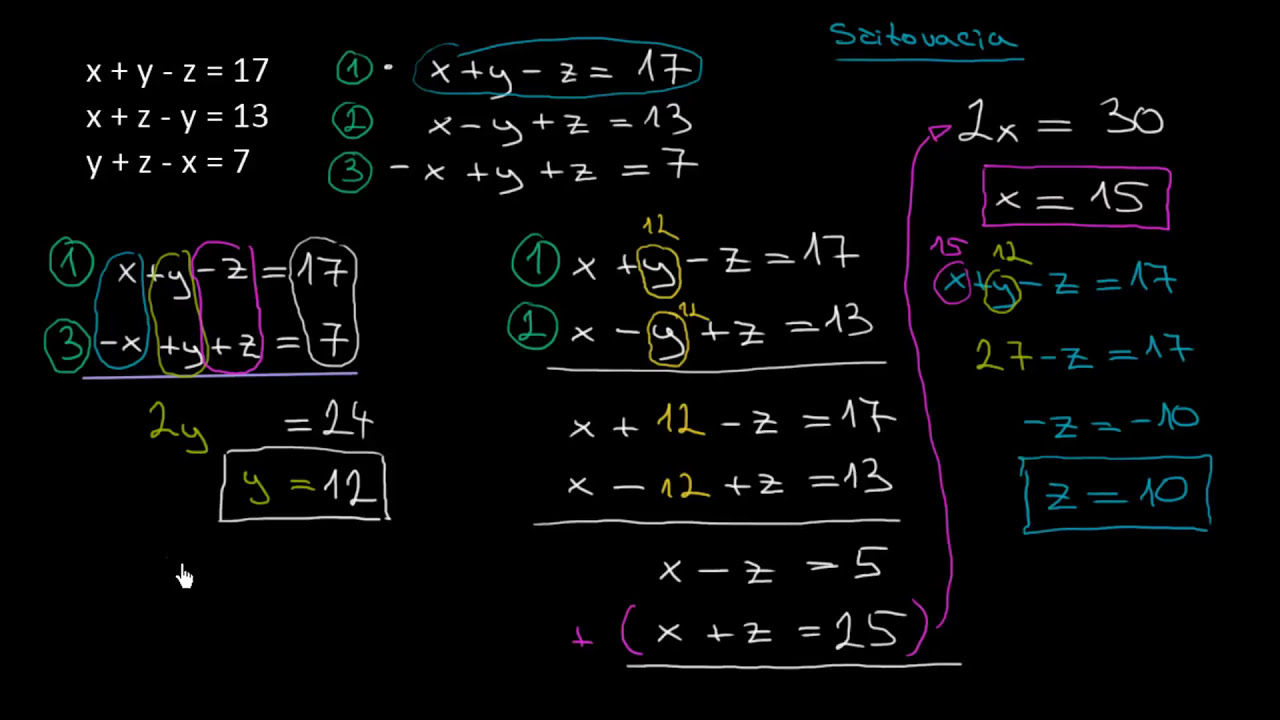 Sčitovacia
x + y - z = 17
x + z - y = 13
y + z - x = 7
① • x + y - z = 17
② x - y + z = 13
③ - x + y + z = 7
① x + y - z = 17
③ - x + y + z = 7
2y = 24
y = 12
12
① x + y - z = 17
12
② x - y + z = 13
x + 12 - z = 17
x - 12 + z = 13
x - z = 5
+ ( x + z = 25 )
2x = 30
x = 15
15 12
x + y - z = 17
27 - z = 17
- z = - 10
z = 10